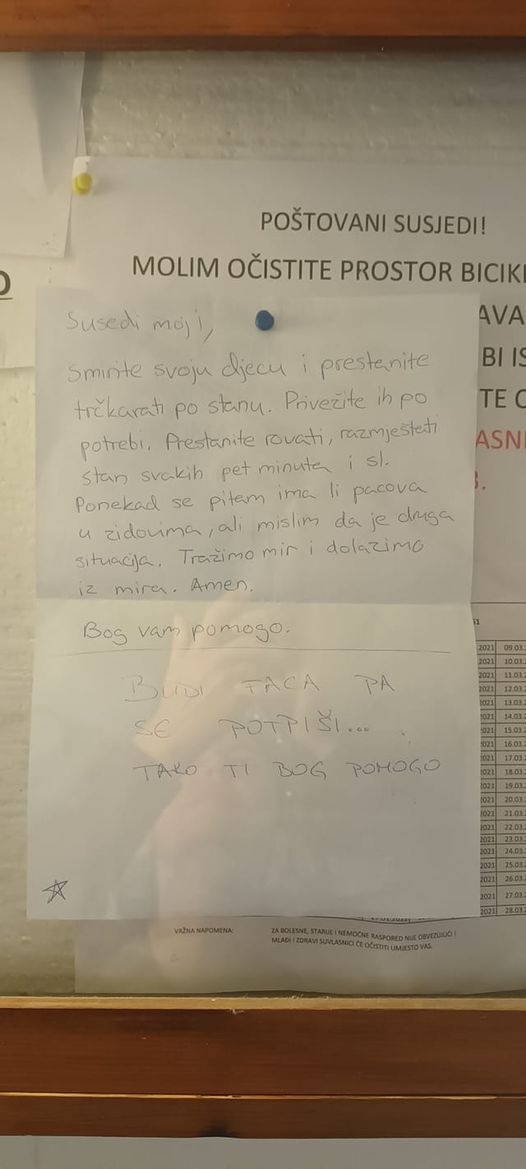 POŠTOVANI SUSJEDI!
MOLIM OČISTITE PROSTOR
Susedi moji,
Smirite svoju djecu i prestanite
trčkarati po stanu. Privežite ih po
potrebi. Prestanite rovati, razmještati
stan svakih pet minuta i sl.
Ponekad se pitam ima li pacova
u zidovima, ali mislim da je druga
situacija. Tražimo mir i dolazimo
iz mira. Amen.
Bog vam pomogo.
BUDI FACA PA
SE POTPIŠI...
TAKO TI BOG POMOGO
2021 09.03.
2021 10.03.
2021 11.03.
2021 12.03.
2021 13.03.
2021 14.03.
2021 15.03.
2021 16.03.
2021 17.03.
2021 18.03.
2021 19.03.
2021 20.03.
2021 21.03.
2021 22.03.
2021 23.03.
2021 24.03.
2021 25.03.
2021 26.03.
2021 27.03.
2021 28.03.
VAŽNA NAPOMENA: ZA BOLESNE, STARIJE I NEMOĆNE RASPORED NIJE OBVEZUJUĆI I
MLAĐI I ZDRAVI SUVLASNICI ĆE OČISTITI UMJESTO VAS.